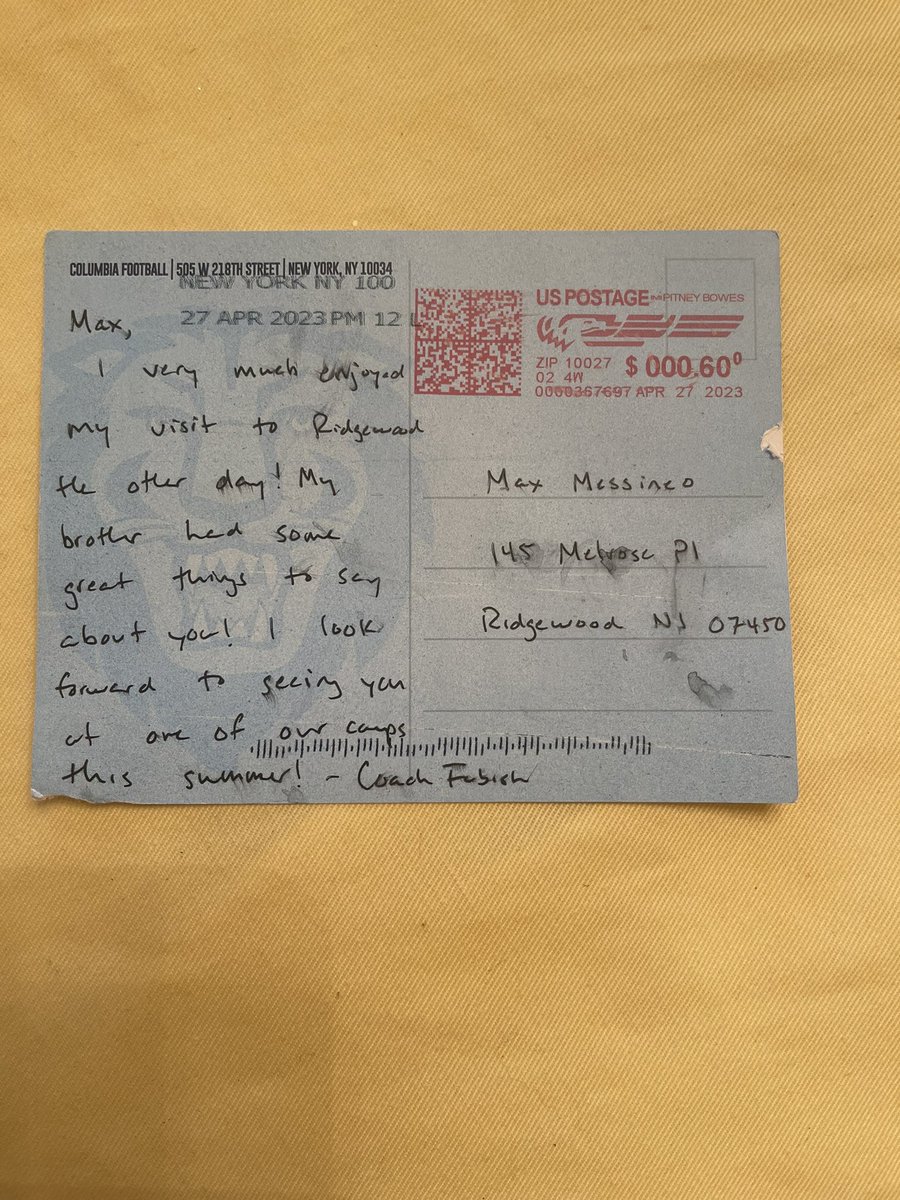 COLUMBIA FOOTBALL | 505 W 218TH STREET | NEW YORK, NY 10034
NEW YORK NY 100
27 APR 2023 PM 12 L
Max,
I very much enjoyed
my visit to Ridgewood
the other day! My
brother had some
great things to say
about you! I look
forward to seeing you
at one of our camps
this summer! - Coach Fabish
US POSTAGE PITNEY BOWES
ZIP 10027 $ 000.60⁰
02 4W
0000367697 APR 27 2023
Max Messineo
145 Melrose Pl
Ridgewood NJ 07450